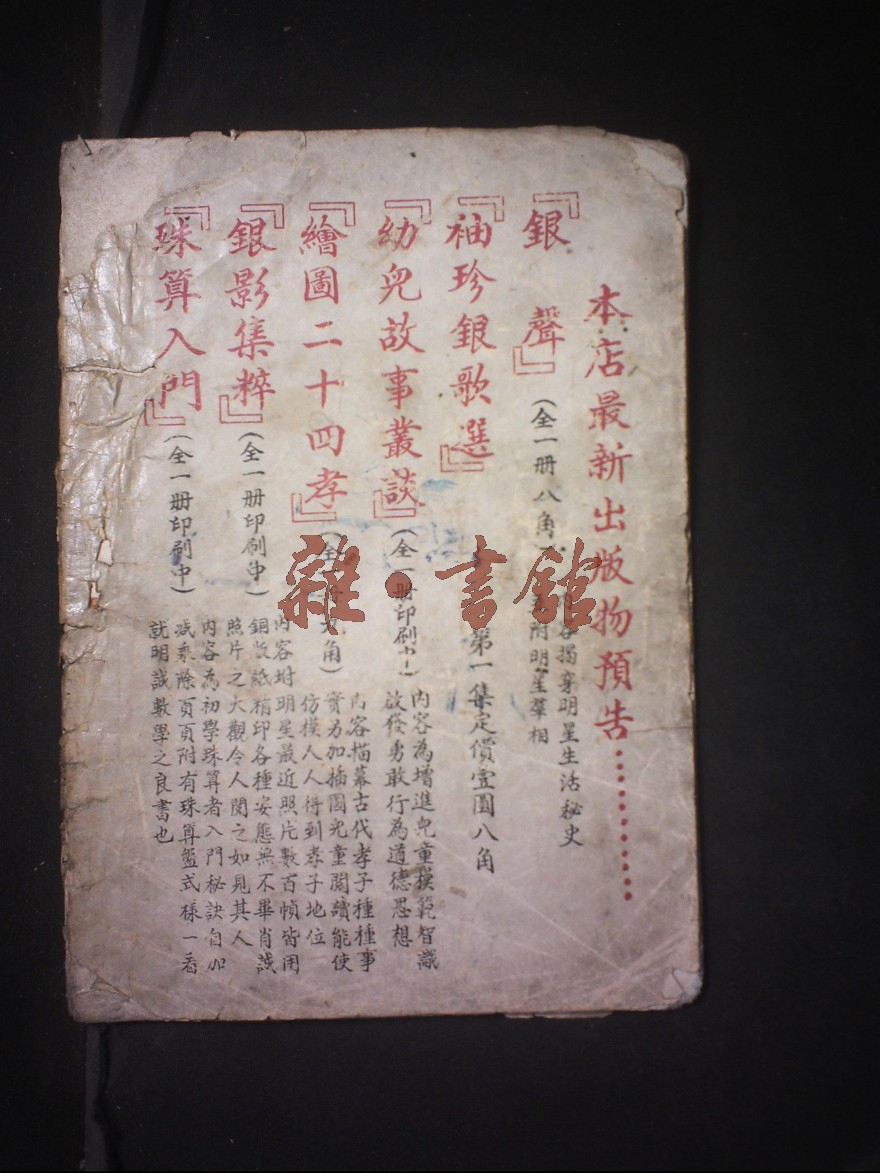 本店最新出版物預告…………
『銀聲』
(全一冊八角
揭穿明星生活秘史
附明星羣相
『袖珍銀歌選』
第一集定價壹圓八角
『幼兒故事叢談』
(全一冊印刷中)
內容為增進兒童模範智識
啟發勇敢行為道德思想
『繪圖二十四孝』
角)
內容描摹古代孝子種種事
實另加插圖兒童閱讀能使
仿模人人得到孝子地位
『銀影集粹』
(全一冊印刷中)
內容坿明星最近照片數百幀皆用
銅版紙精印各種姿態無不畢肖誠
照片之大觀令人閱之如見其人
『珠算入門』
(全一冊印刷中)
內容為初學珠算者入門秘訣自加
減乘除頁頁附有珠算盤式樣一看
就明誠數學之良書也
雜·書館